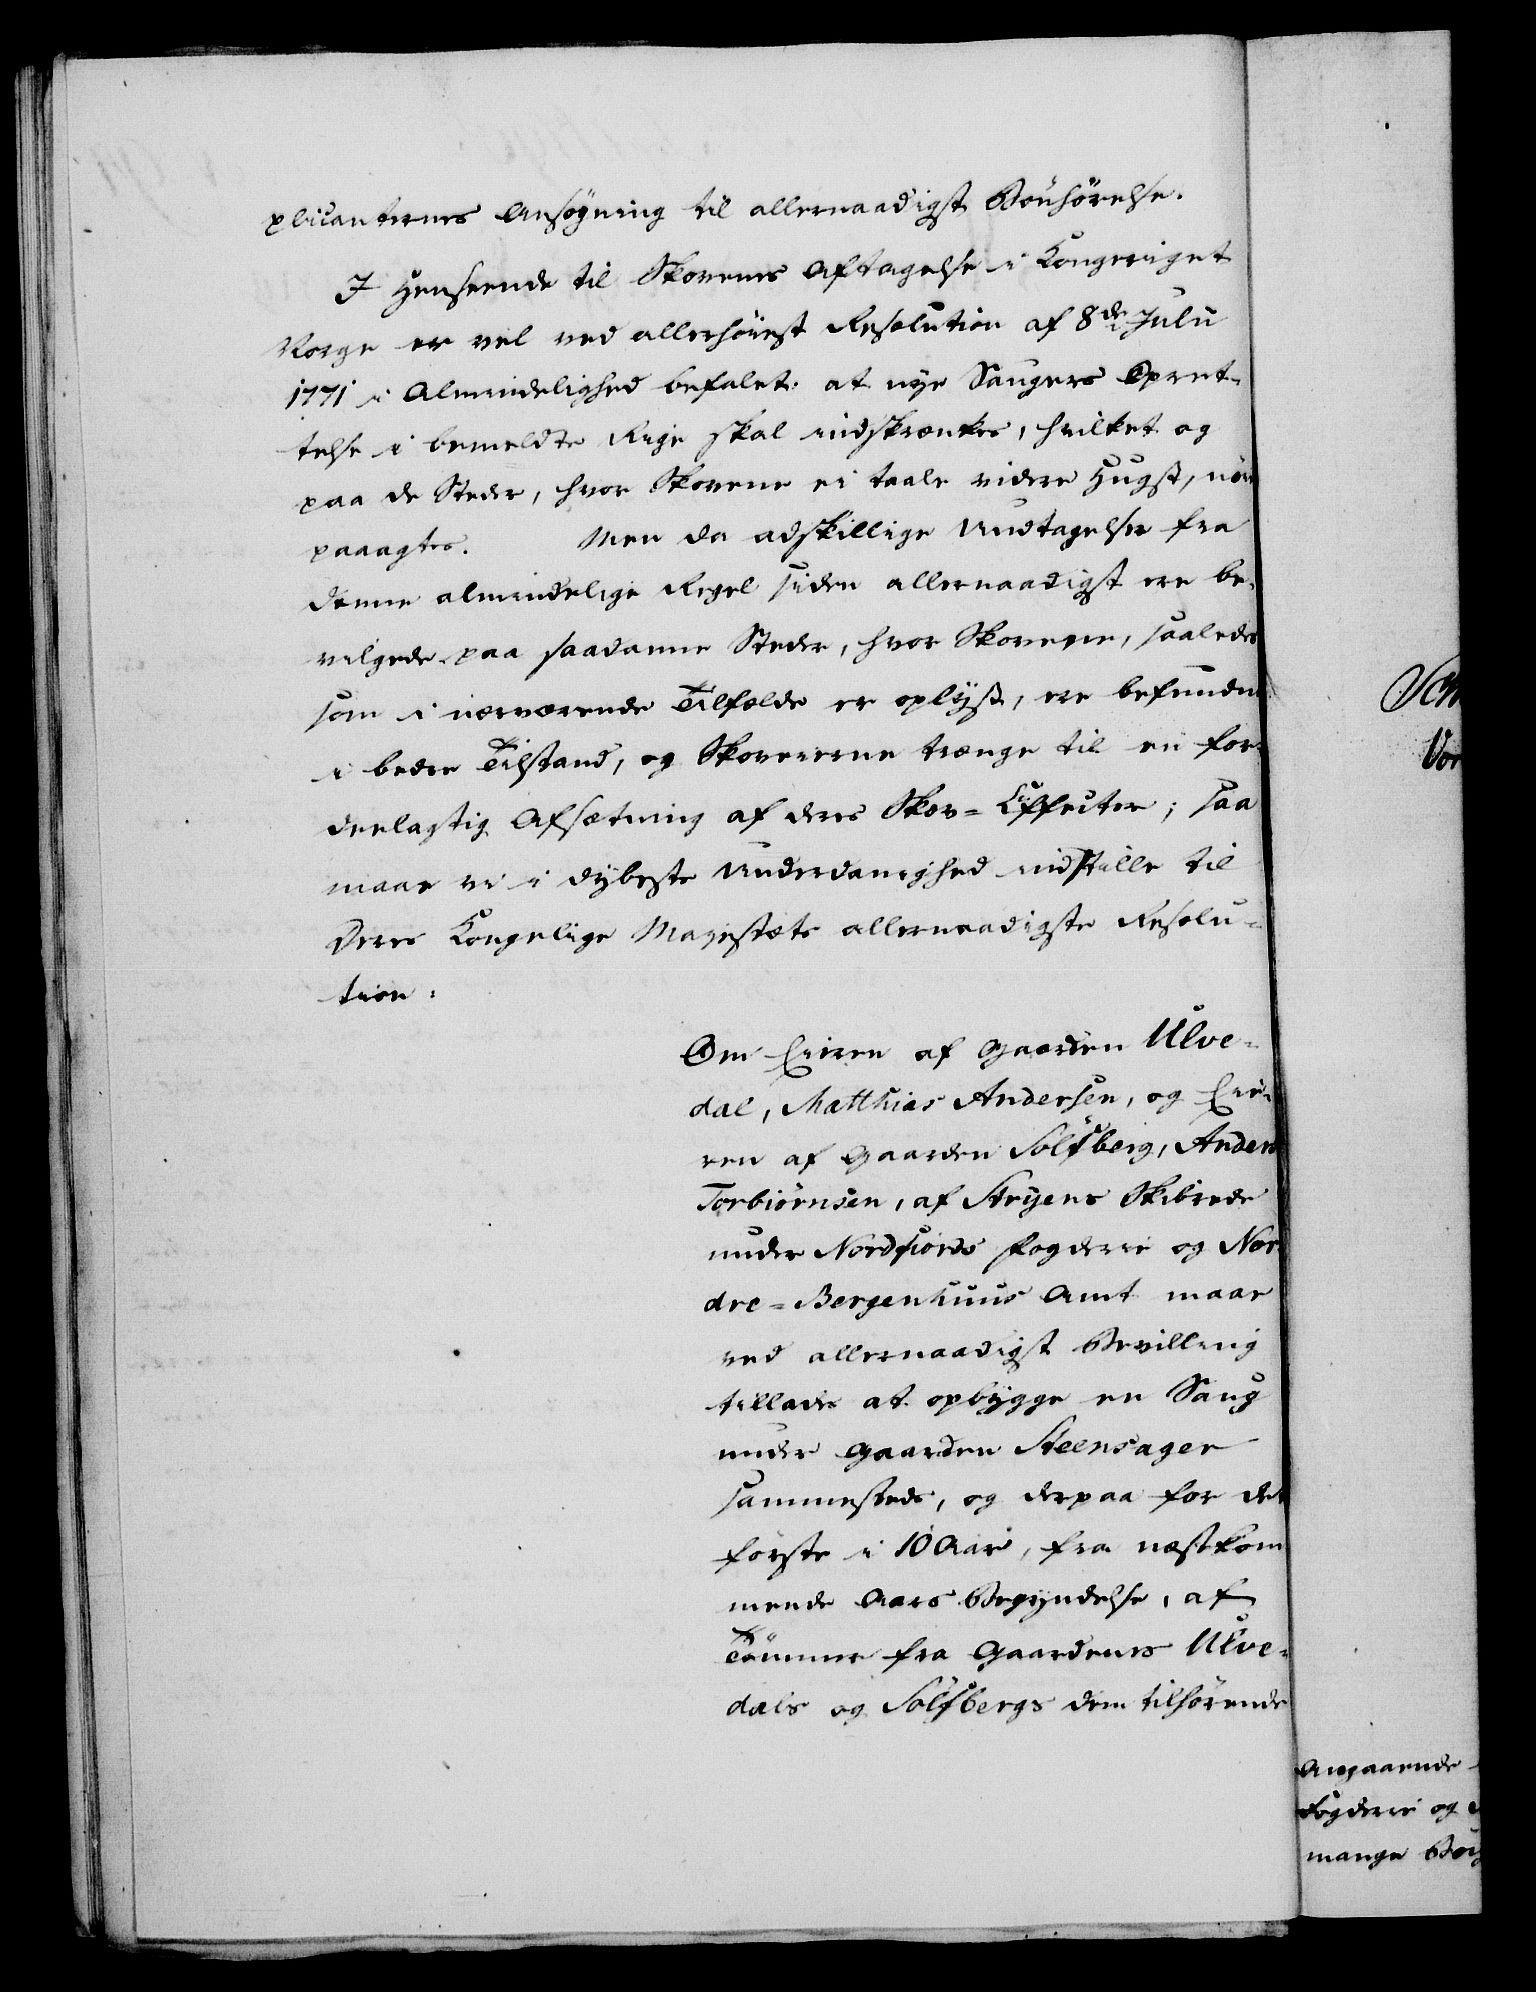 plicanternes Ansøgning til allernaadigst Bønhørelse.
I Henseende til Skovenes Aftagelse i Kongeriget
Norge er vel ved allerhöiest Resolution af 8de Julii
1771 i Almindelighed befalet: at nye Saugers Opret-
telse i bemeldte Rige skal indskrænkes, hvilket og
paa de Steder, hvor Skovene ei taale videre Hugst, nöie
paaagtes. Men da adskillige Undtagelser fra
denne almindelige Regel siden allernaadigst ere be-
vilgede paa saadanne Steder, hvor Skovene, saaledes
som i nærværende Tilfælde er oplÿst, ere befundne
i bedre Tilstand, og Skoveierne trænge til en for-
deelagtig Afsætning af deres Skov-Effecter; saa
maae vi i dÿbeste Underdanighed indstille til
Deres Kongelige Majestæts allernaadigste Resolu-
tion:
Om Eieren af Gaarden Ulve-
dal, Matthias Andersen, og Eie-
ren af Gaarden Solfsberg, Anders
Torbiörnsen, af Stryens Skibrede
under Nordfiords Fogderie og Nor-
dre-Bergenhuus Amt maae
ved allernaadigst Bevilling
tillades at opbÿgge en Saug
under Gaarden Steensager
sammesteds, og derpaa for det
förste i 10 Aar, fra næstkom
mende Aars Begÿndelse, af
Tömmer fra Gaardenes Ulve-
dals og Solfsbergs dem tilhörende
Angaaende
Fogderie og
mange